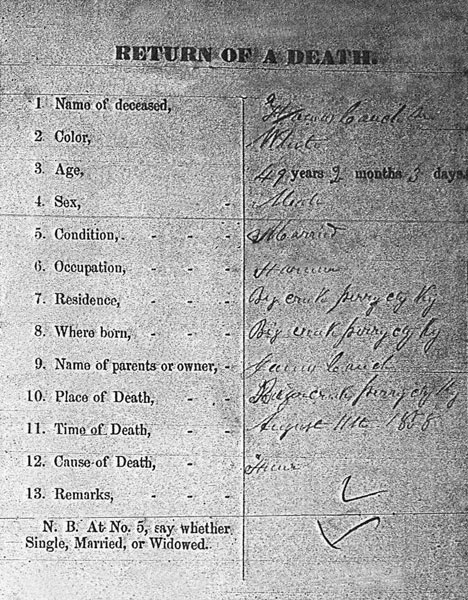 RETURN OF A DEATH.
1 Name of deceased,
2 Color, White
3. Age, 49 years 2 months 3 days.
4. Sex, - Male
5. Condition, - - Married
6. Occupation, - - - Farmer
7. Residence, - - - Big creek perry cty Ky
8. Where born, - - - Big creek perry cty Ky
9. Name of parents or owner, -
10. Place of Death, - - perry cty Ky
11. Time of Death, - - August 11th
12. Cause of Death, -
13. Remarks, - - -
N. B. At No. 5, say whether
Single, Married, or Widowed.